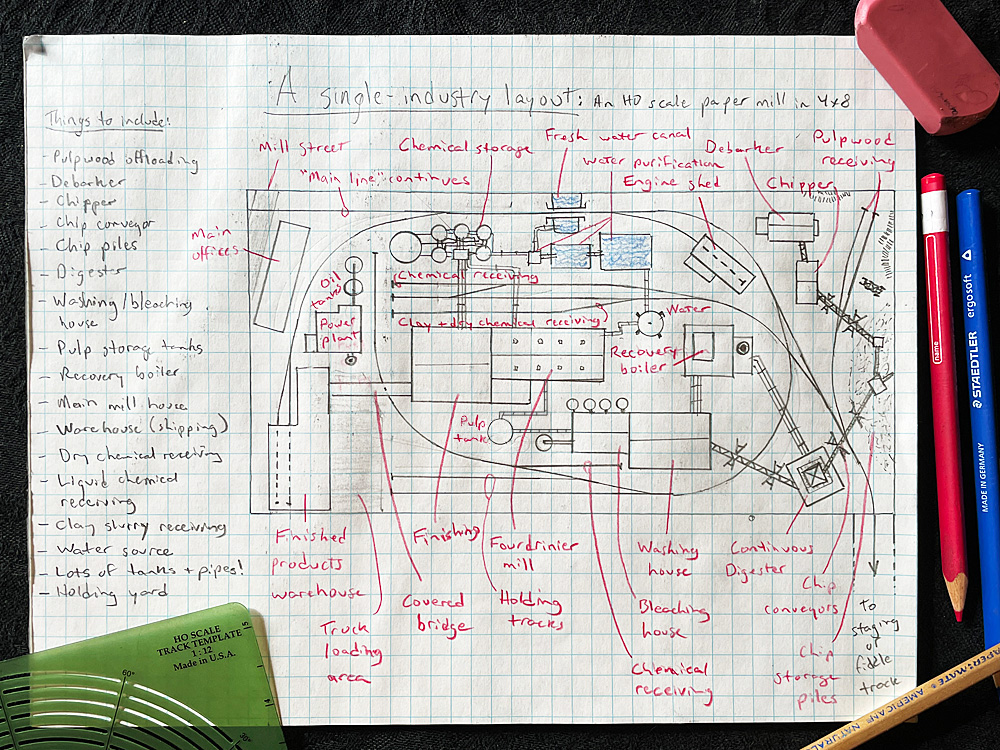 A single-industry layout: An HO scale paper mill in 4x8
Things to include:
- Pulpwood offloading
- Debarker
- Chipper
- Chip conveyor
- Chip piles
- Digester
- Washing/bleaching
house
- Pulp storage tanks
- Recovery boiler
- Main mill house
- Warehouse (shipping)
- Dry chemical receiving
- Liquid chemical
receiving
- Clay slurry receiving
- Water source
- Lots of tanks + pipes!
- Holding yard
Mill street
"Main line" continues
Chemical storage
Fresh water canal
Water purification
Engine shed
Debarker
Chipper
Pulpwood
receiving
Main
offices
Oil
tanks
Power
plant
Chemical receiving
Clay + dry chemical receiving
Water
Recovery
boiler
Pulp
tank
Finished
products
warehouse
Truck
loading
area
Finishing
Covered
bridge
Fourdrinier
mill
Holding
tracks
Washing
house
Bleaching
house
Chemical
receiving
Continuous
Digester
Chip
conveyors
Chip
storage
piles
to
staging
or
fiddle
track
HO SCALE
TRACK TEMPLATE
1:12
Made in U.S.A.
60°
30°
name
STAEDTLER
ergosoft
MADE IN GERMANY
PAPER:MATE
AMERICAN NATURAL